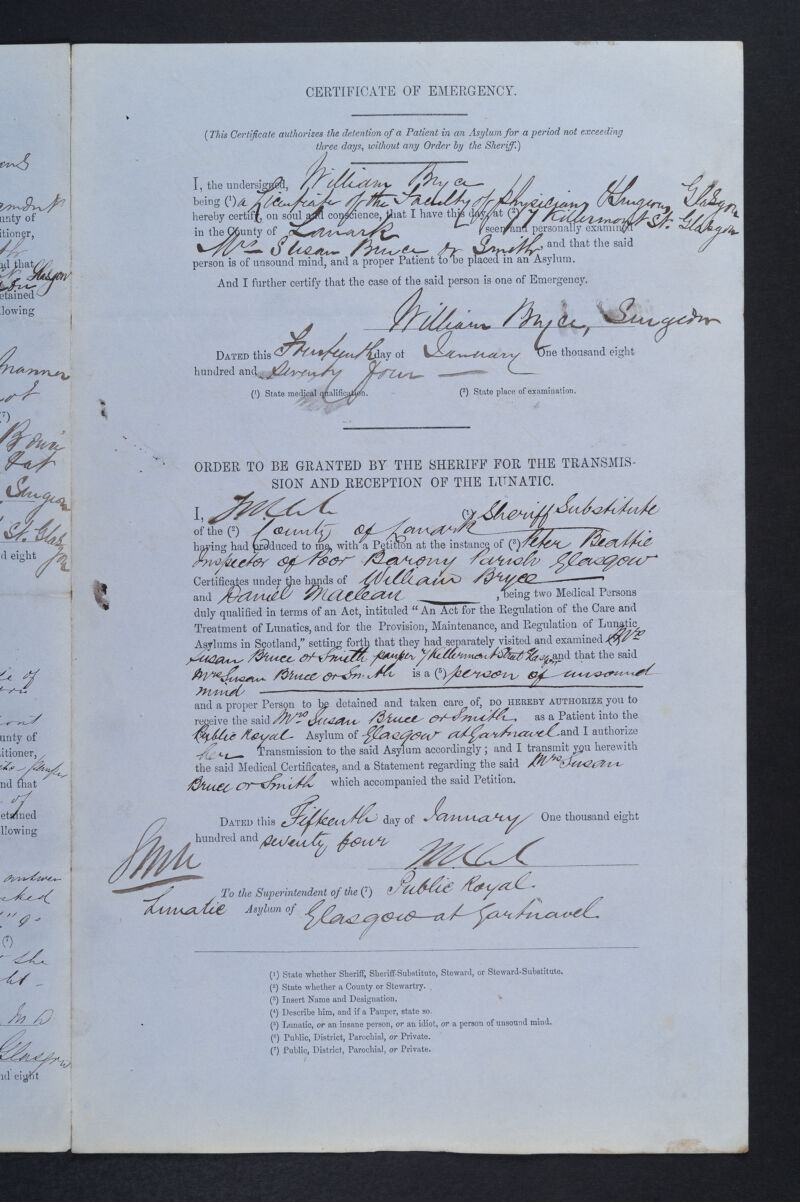 CERTIFICATE OF EMERGENCY.
(This Certificate authorizes the detention of a Patient in an Asylum for a period not exceeding
three days, without any Order by the Sheriff.)
I, the undersigned, William Bryce
being (1) a Licentiate of the Faculty of Physicians & Surgeons Glasgow
hereby certify, on soul and conscience, that I have this day, at (2) 7 Killermont St. Glasgow
in the County of Lanark seen and personally examined
Mrs Susan Bruce or Smith and that the said
person is of unsound mind, and a proper Patient to be placed in an Asylum.
And I further certify that the case of the said person is one of Emergency.
William Bryce, Surgeon
DATED this Fourteenth day of January One thousand eight
hundred and seventy four
(1) State medical qualification. (2) State place of examination.
ORDER TO BE GRANTED BY THE SHERIFF FOR THE TRANSMIS-
SION AND RECEPTION OF THE LUNATIC.
I, (1) Sheriff Substitute
of the (2) County of Lanark
having had produced to me, with a Petition at the instance of (3) Peter Beattie
Inspector of Poor Barony Parish Glasgow
Certificates under the hands of William Bryce
and Daniel Maclean, being two Medical Persons
duly qualified in terms of an Act, intituled "An Act for the Regulation of the Care and
Treatment of Lunatics, and for the Provision, Maintenance, and Regulation of Lunatic
Asylums in Scotland," setting forth that they had separately visited and examined Mrs
Susan Bruce or Smith pauper 7 Killermont Street Glasgow and that the said
Mrs Susan Bruce or Smith is a (5) person of unsound
mind
and a proper Person to be detained and taken care of, DO HEREBY AUTHORIZE you to
receive the said Mrs Susan Bruce or Smith as a Patient into the
Public Royal Asylum of Glasgow at Gartnavel and I authorize
her Transmission to the said Asylum accordingly; and I transmit you herewith
the said Medical Certificates, and a Statement regarding the said Mrs Susan
Bruce or Smith which accompanied the said Petition.
DATED this Fifteenth day of January One thousand eight
hundred and seventy four
To the Superintendent of the (7) Public Royal
Lunatic Asylum of Glasgow at Gartnavel
(1) State whether Sheriff, Sheriff-Substitute, Steward, or Steward-Substitute.
(2) State whether a County or Stewartry.
(3) Insert Name and Designation.
(4) Describe him, and if a Pauper, state so.
(5) Lunatic, or an insane person, or an idiot, or a person of unsound mind.
(6) Public, District, Parochial, or Private.
(7) Public, District, Parochial, or Private.